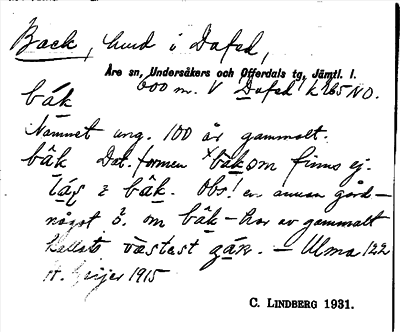 Back, hmd i Dafsd,
Åre sn, Undersåkers och Offerdals tg, Jämtl. l.
600 m. V Dafsd k 265 NO.
båk
Namnet ung. 100 år gammalt.
båk Dat. formen ˣbakom finns ej.
i båk. Obs! en annan gård –
något ö. om båk – har av gammalt
kallats västest gäȓ. – Ulma 122
H. Geijer 1915
C. LINDBERG 1931.